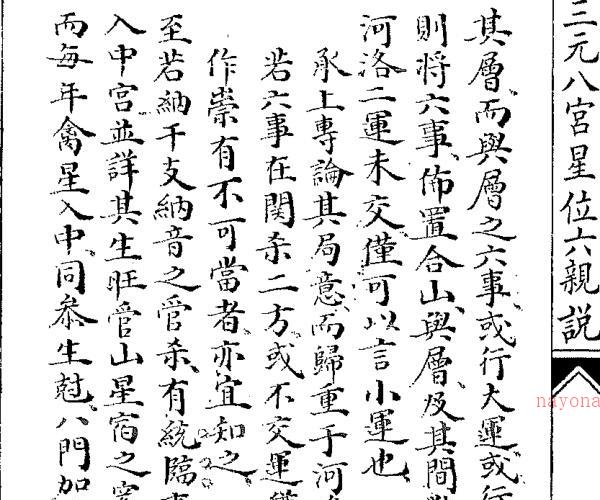 三元八宮星位六親說
其層而與層之六事或行大運或行
則将六事佈置合山與層及其間
河洛二運未交僅可以言小運也
承上專論其局意而歸重于河
若六事在関杀二方或不交運
作祟有不可當者亦宜知之
至若納干支納音之管杀有統臨
入中宮並詳其生旺管山星宿之
而每年禽星入中同叅生尅八門加
nayona